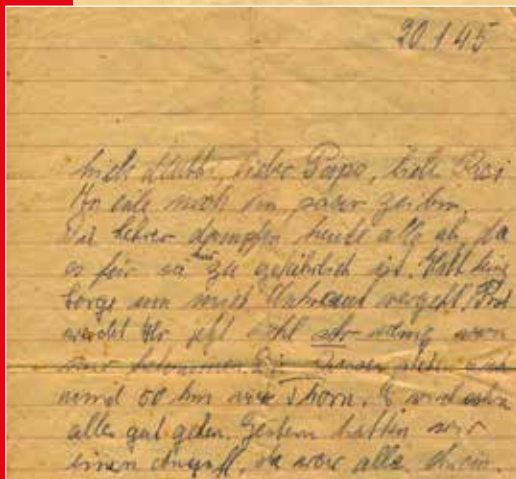 20.1.45
Liebe Mutti, lieber Papa, liebe Rosi
In Eile noch ein paar Zeilen.
Die Lehrer dampfen heute alle ab, da
es für sie hier zu gefährlich ist. Habt keine
Sorge um mich Unkraut vergeht. Post
werdet Ihr jetzt wohl sehr wenig von
mir bekommen. Die stehen
50 km vor Thorn. Es wird schon
alles gut gehen. Gestern hatten wir
einen Angriff, da war alles